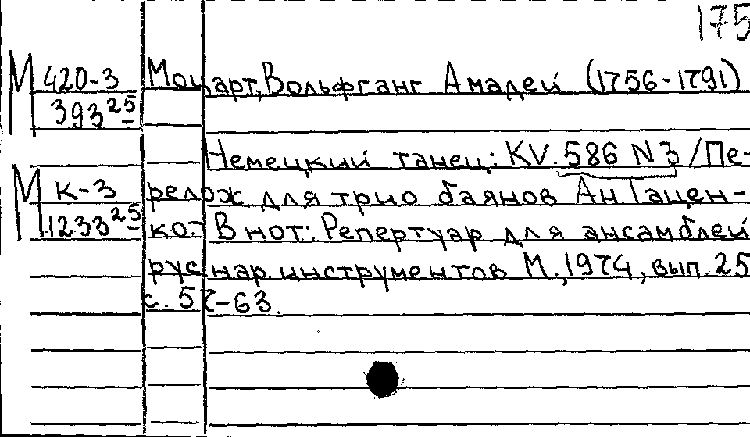 175
М 420-3 Моцарт, Вольфганг Амадей (1756-1791)
393 25
Немецкий танец: KV. 586 N 3 / Пе-
М К-3 релож для трио баянов Ан Гацен-
1233 25 ко.- В нот.: Репертуар для ансамблей
рус нар. инструментов М., 1974, вып. 25
с. 57-63.